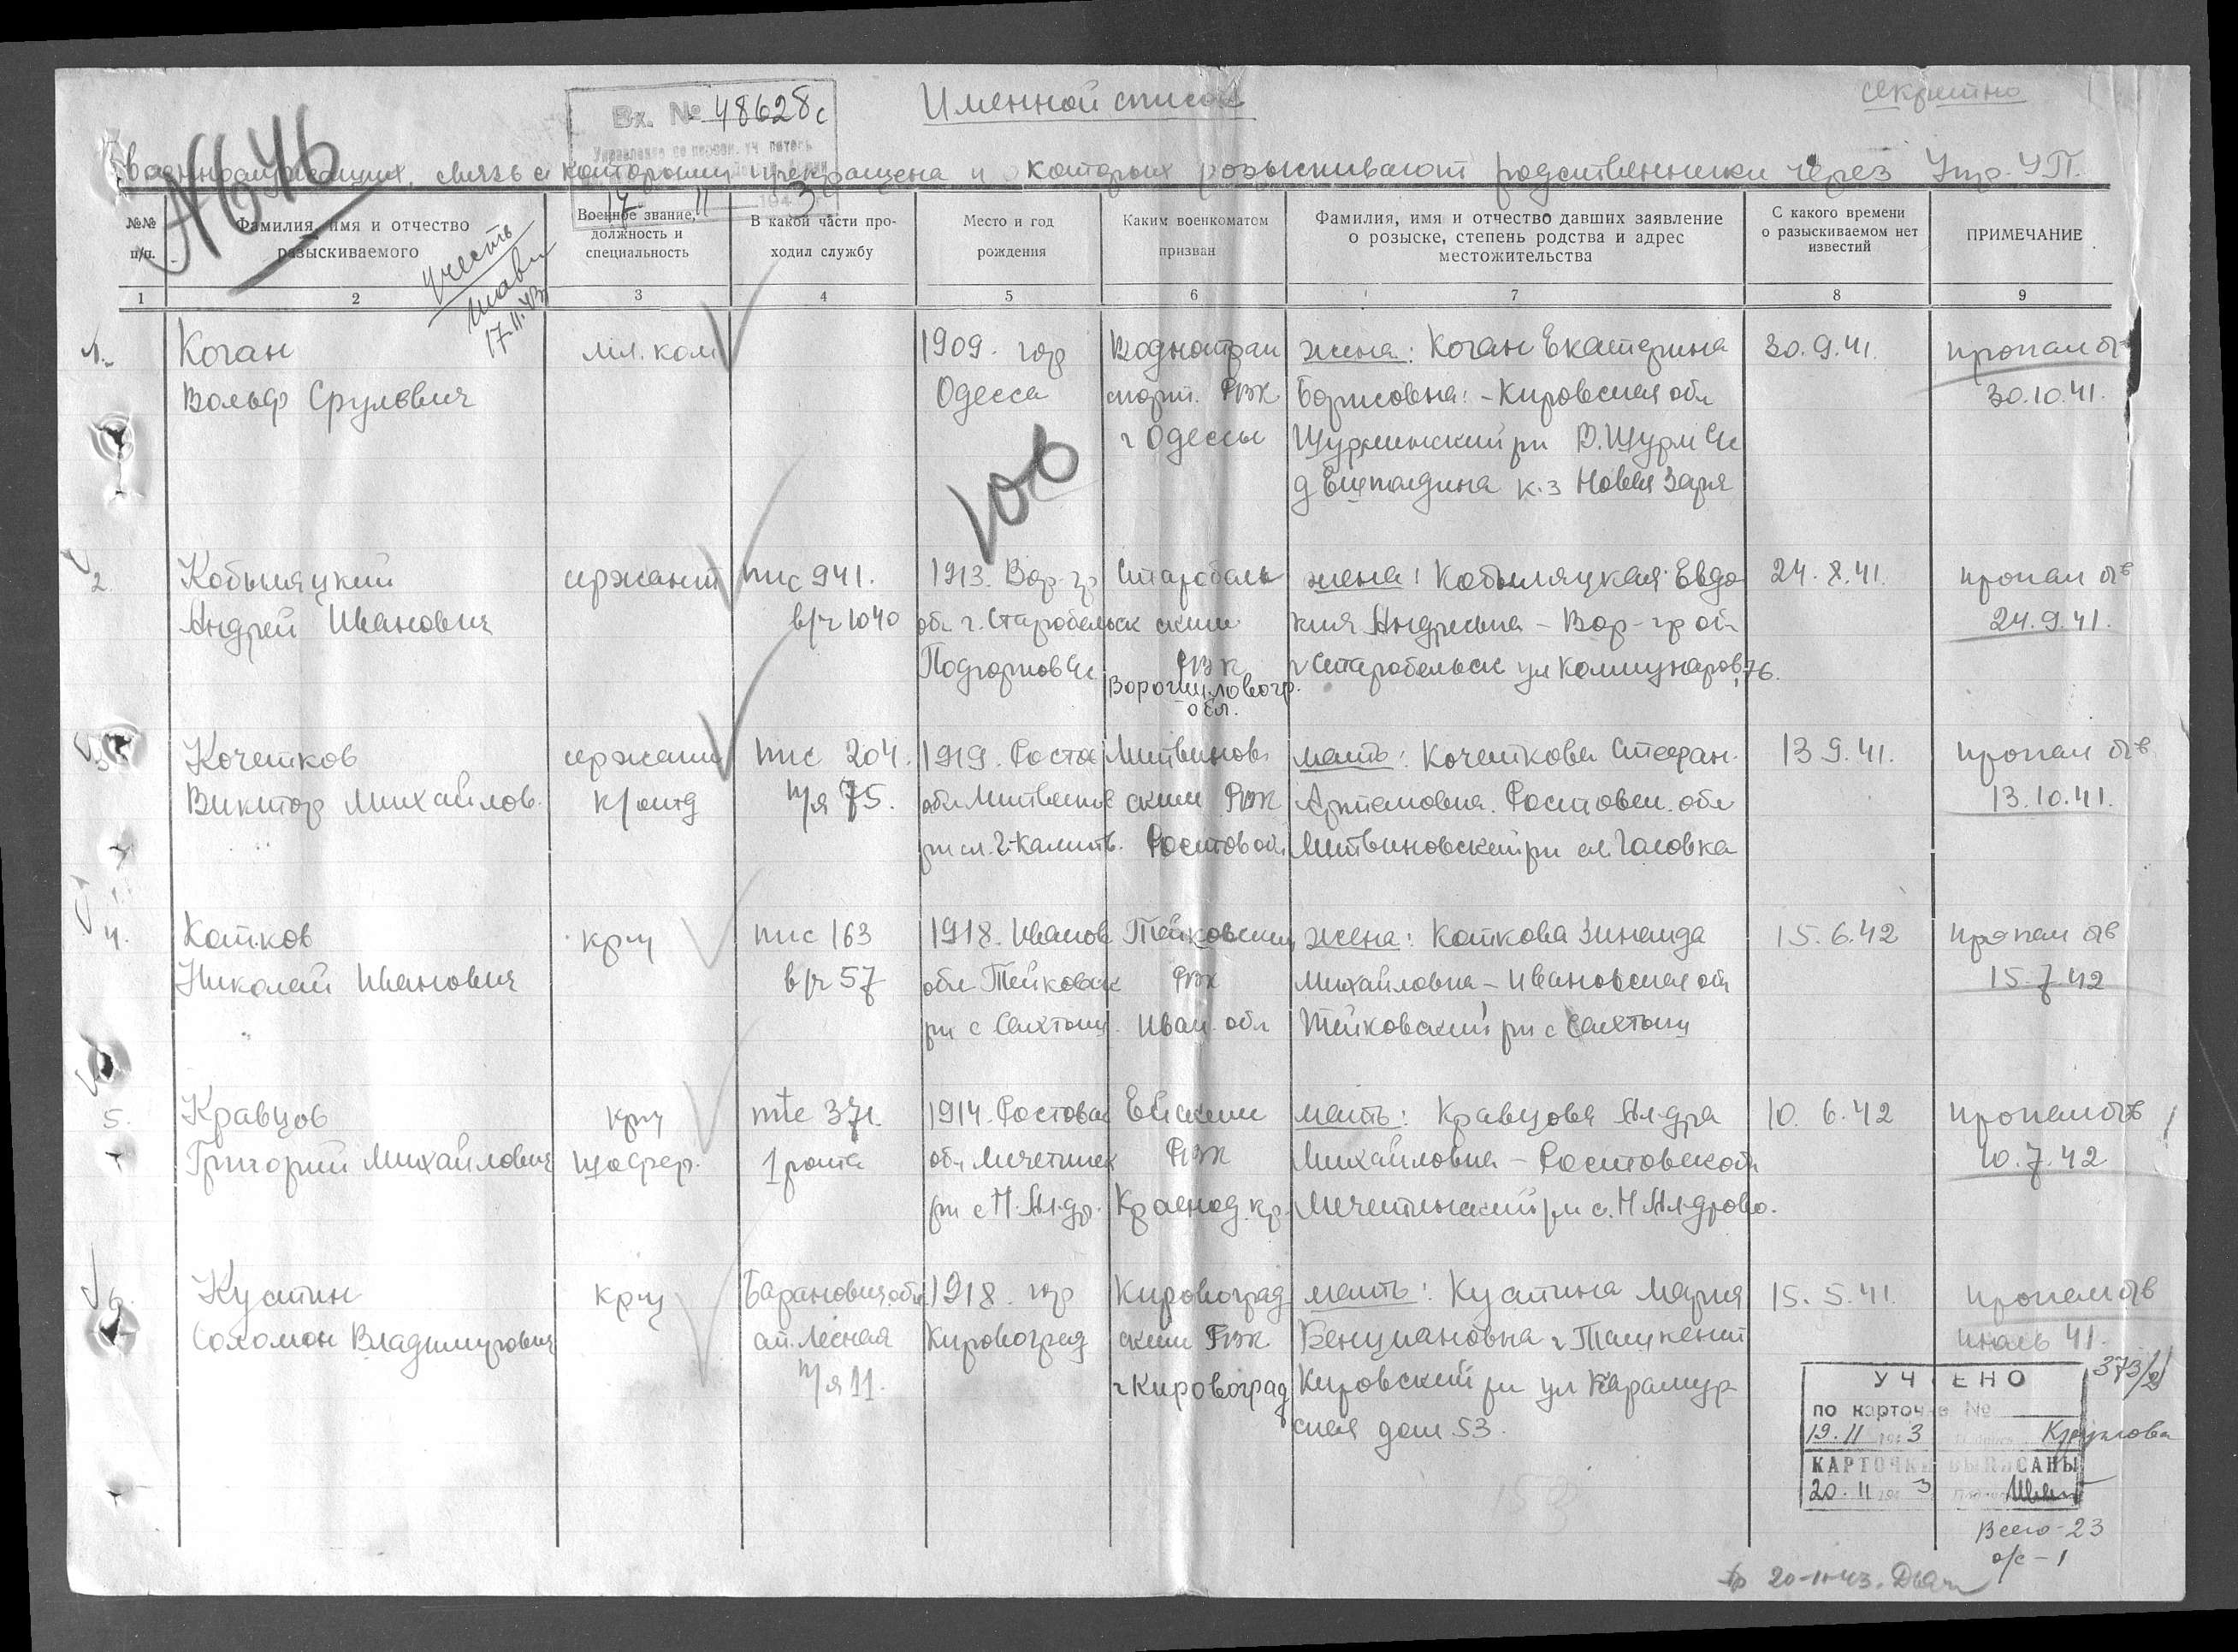 секретно
Вх. № 48628с
Именной список
№646
военнослужащих, связь с которыми прекращена и которых розыскивают родственники через Упр. УП.
17 11 194 3
учесть
17.11.43
№№ п/п.
Фамилия, имя и отчество разыскиваемого
Военное звание, должность и специальность
В какой части проходил службу
Место и год рождения
Каким военкоматом призван
Фамилия, имя и отчество давших заявление о розыске, степень родства и адрес местожительства
С какого времени о разыскиваемом нет известий
ПРИМЕЧАНИЕ
1 2 3 4 5 6 7 8 9
1. Коган мл. ком 1909. гор Воднотран жена: Коган Екатерина 30.9.41. пропал б/в
Вольф Срулевич Одесса спорт. РВК Борисовна: - Кировская обл 30.10.41.
г Одессы Шурминский рн В.Шурм с/с
д к-з Новая Заря
100
2. Кобыляцкий сержант ппс 941. 1913. Вор-гр Старобель жена: Кобыляцкая Евдо 24.8.41. пропал б/в
Андрей Иванович в/ч 1040 обл г. Старобельск ским кия Андреевна - Вор-гр обл 24.9.41.
Подгоров с/с РВК г Старобельск ул Коммунаров, 76.
Ворошиловогр. обл.
3. Кочетков сержант ппс 204. 1919. Росто Литвинов мать: Кочеткова Стефан. 13.9.41. пропал б/в
Виктор Михайлов. к/отд п/я 75. обл Литвинов ским РВК Артемовна. Ростовск. обл 13.10.41.
рн сл. Г-Калитв. Ростов обл Литвиновский рн сл. Головка
4. Катков кр-ц ппс 163 1918. Иванов Тейковским жена: Каткова Зинаида 15.6.42 пропал б/в
Николай Иванович в/ч 57 обл Тейковск РВК Михайловна - Ивановская обл 15.7.42
рн с Сахтыш. Иван. обл Тейковский рн с Сахтыш
5. Кравцов кр-ц ппс 371. 1914. Ростовск Ейским мать: Кравцова Ал-дра 10.6.42 пропал б/в
Григорий Михайлович шофер. 1 рота обл Мечетинск РВК Михайловна - Ростовск обл 10.7.42
рн с Н. Ал-др. Краснод. кр. Мечетинский рн с. Н Ал-дрово.
6. Кустин кр-ц Баранович. обл 1918. гор Кировоград мать: Кустина Мария 15.5.41. пропал б/в
Соломон Владимирович ст. Лесная Кировоград ским РВК Бенциановна г Ташкент июль 41.
п/я 11. г Кировоград Кировский рн ул Карамур
ская дом 53.
УЧТЕНО 373/2
по карточке №
19.11 194 3 Круглова
КАРТОЧКИ ВЫПИСАНЫ
20.11 194 3
Всего - 23
о/с - 1
20-11-43.